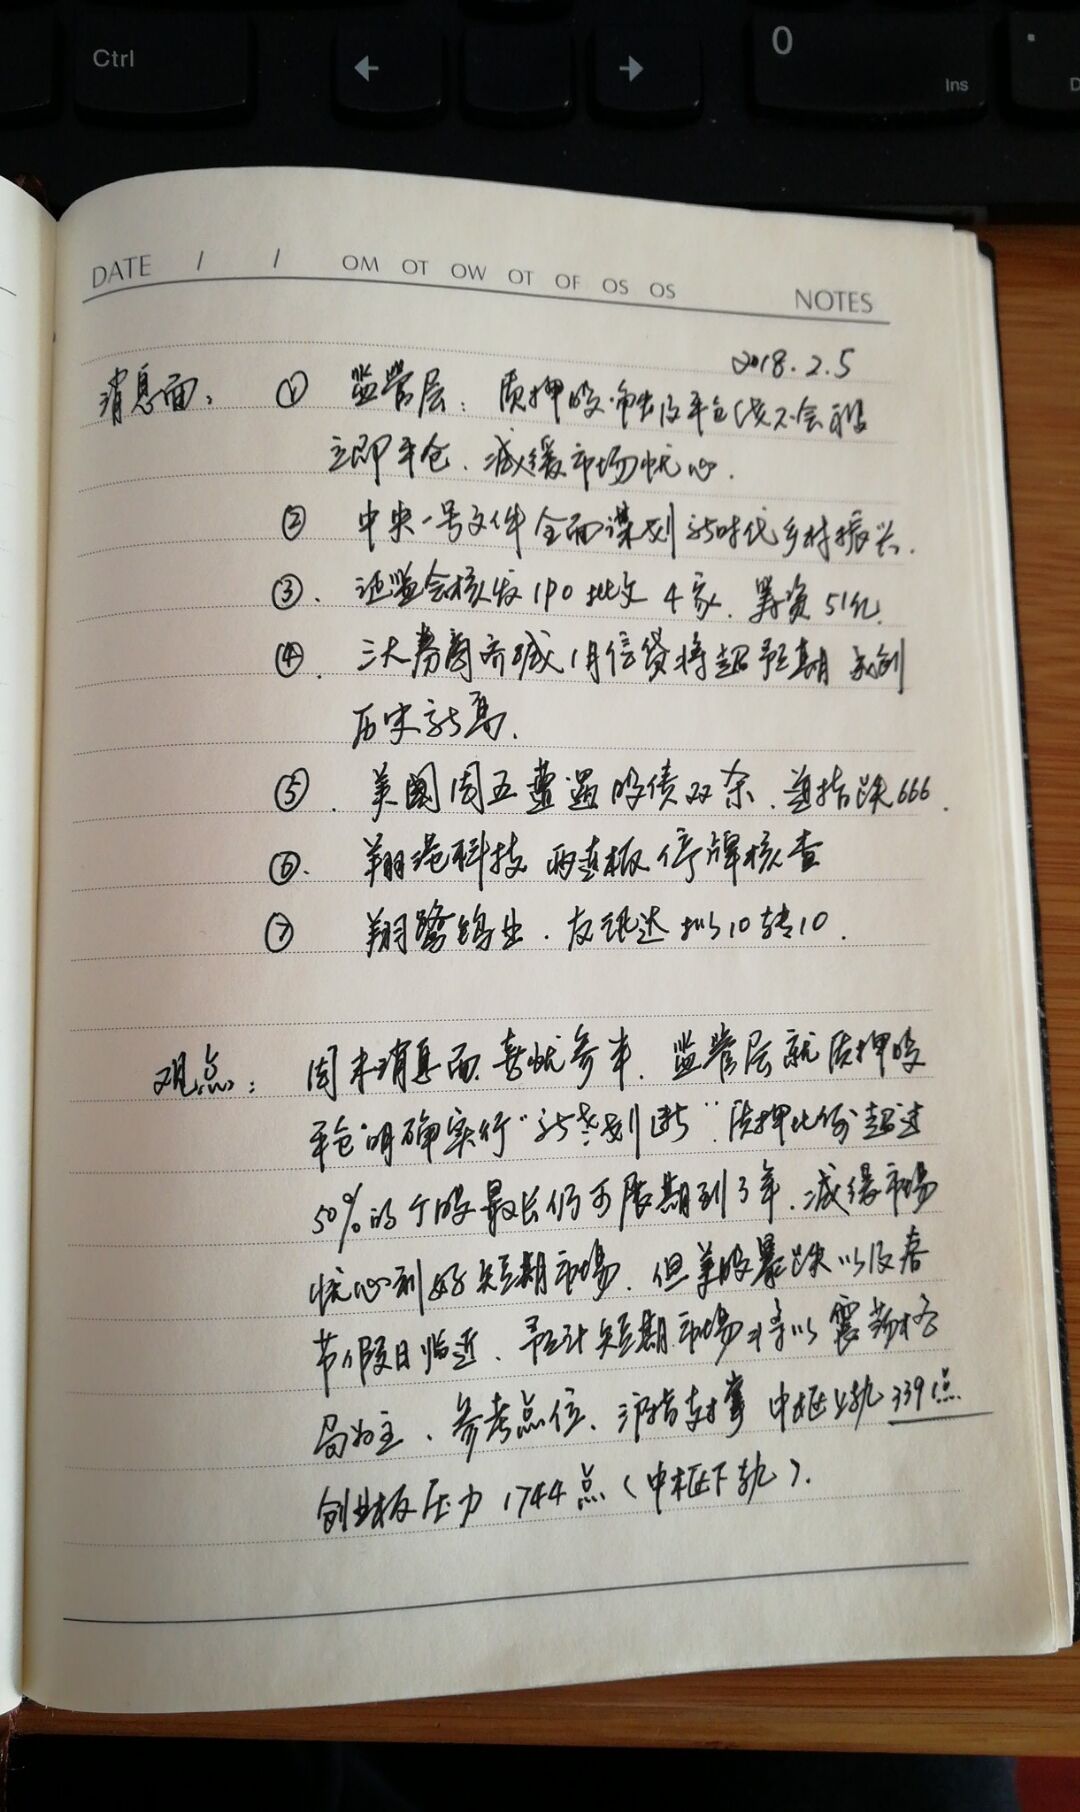 Ctrl
←
→
0
Ins
DATE / / OM OT OW OT OF OS OS
NOTES
2018.2.5
消息面: ① 监管层: 质押股触及平仓线不会被
立即平仓、减缓市场忧心.
② 中央一号文件全面谋划新时代乡村振兴.
③. 证监会核发IPO批文4家、筹资51亿.
④. 三大券商齐喊1月信贷将超预期 或创
历史新高.
⑤. 美国周五遭遇股债双杀、道指跌666.
⑥. 翔港科技 两连板停牌核查
⑦ 翔鹭钨业、友讯达拟10转10.
观点: 周末消息面喜忧参半、监管层就质押股
平仓明确实行“新老划断”质押比例超过
50%的个股最长仍可展期到3年、减缓市场
忧心利好短期市场、但美股暴跌以及春
节假日临近、预计短期市场将以震荡格
局为主、参考点位、沪指支撑 中枢上轨3391点
创业板压力1744点(中枢下轨).